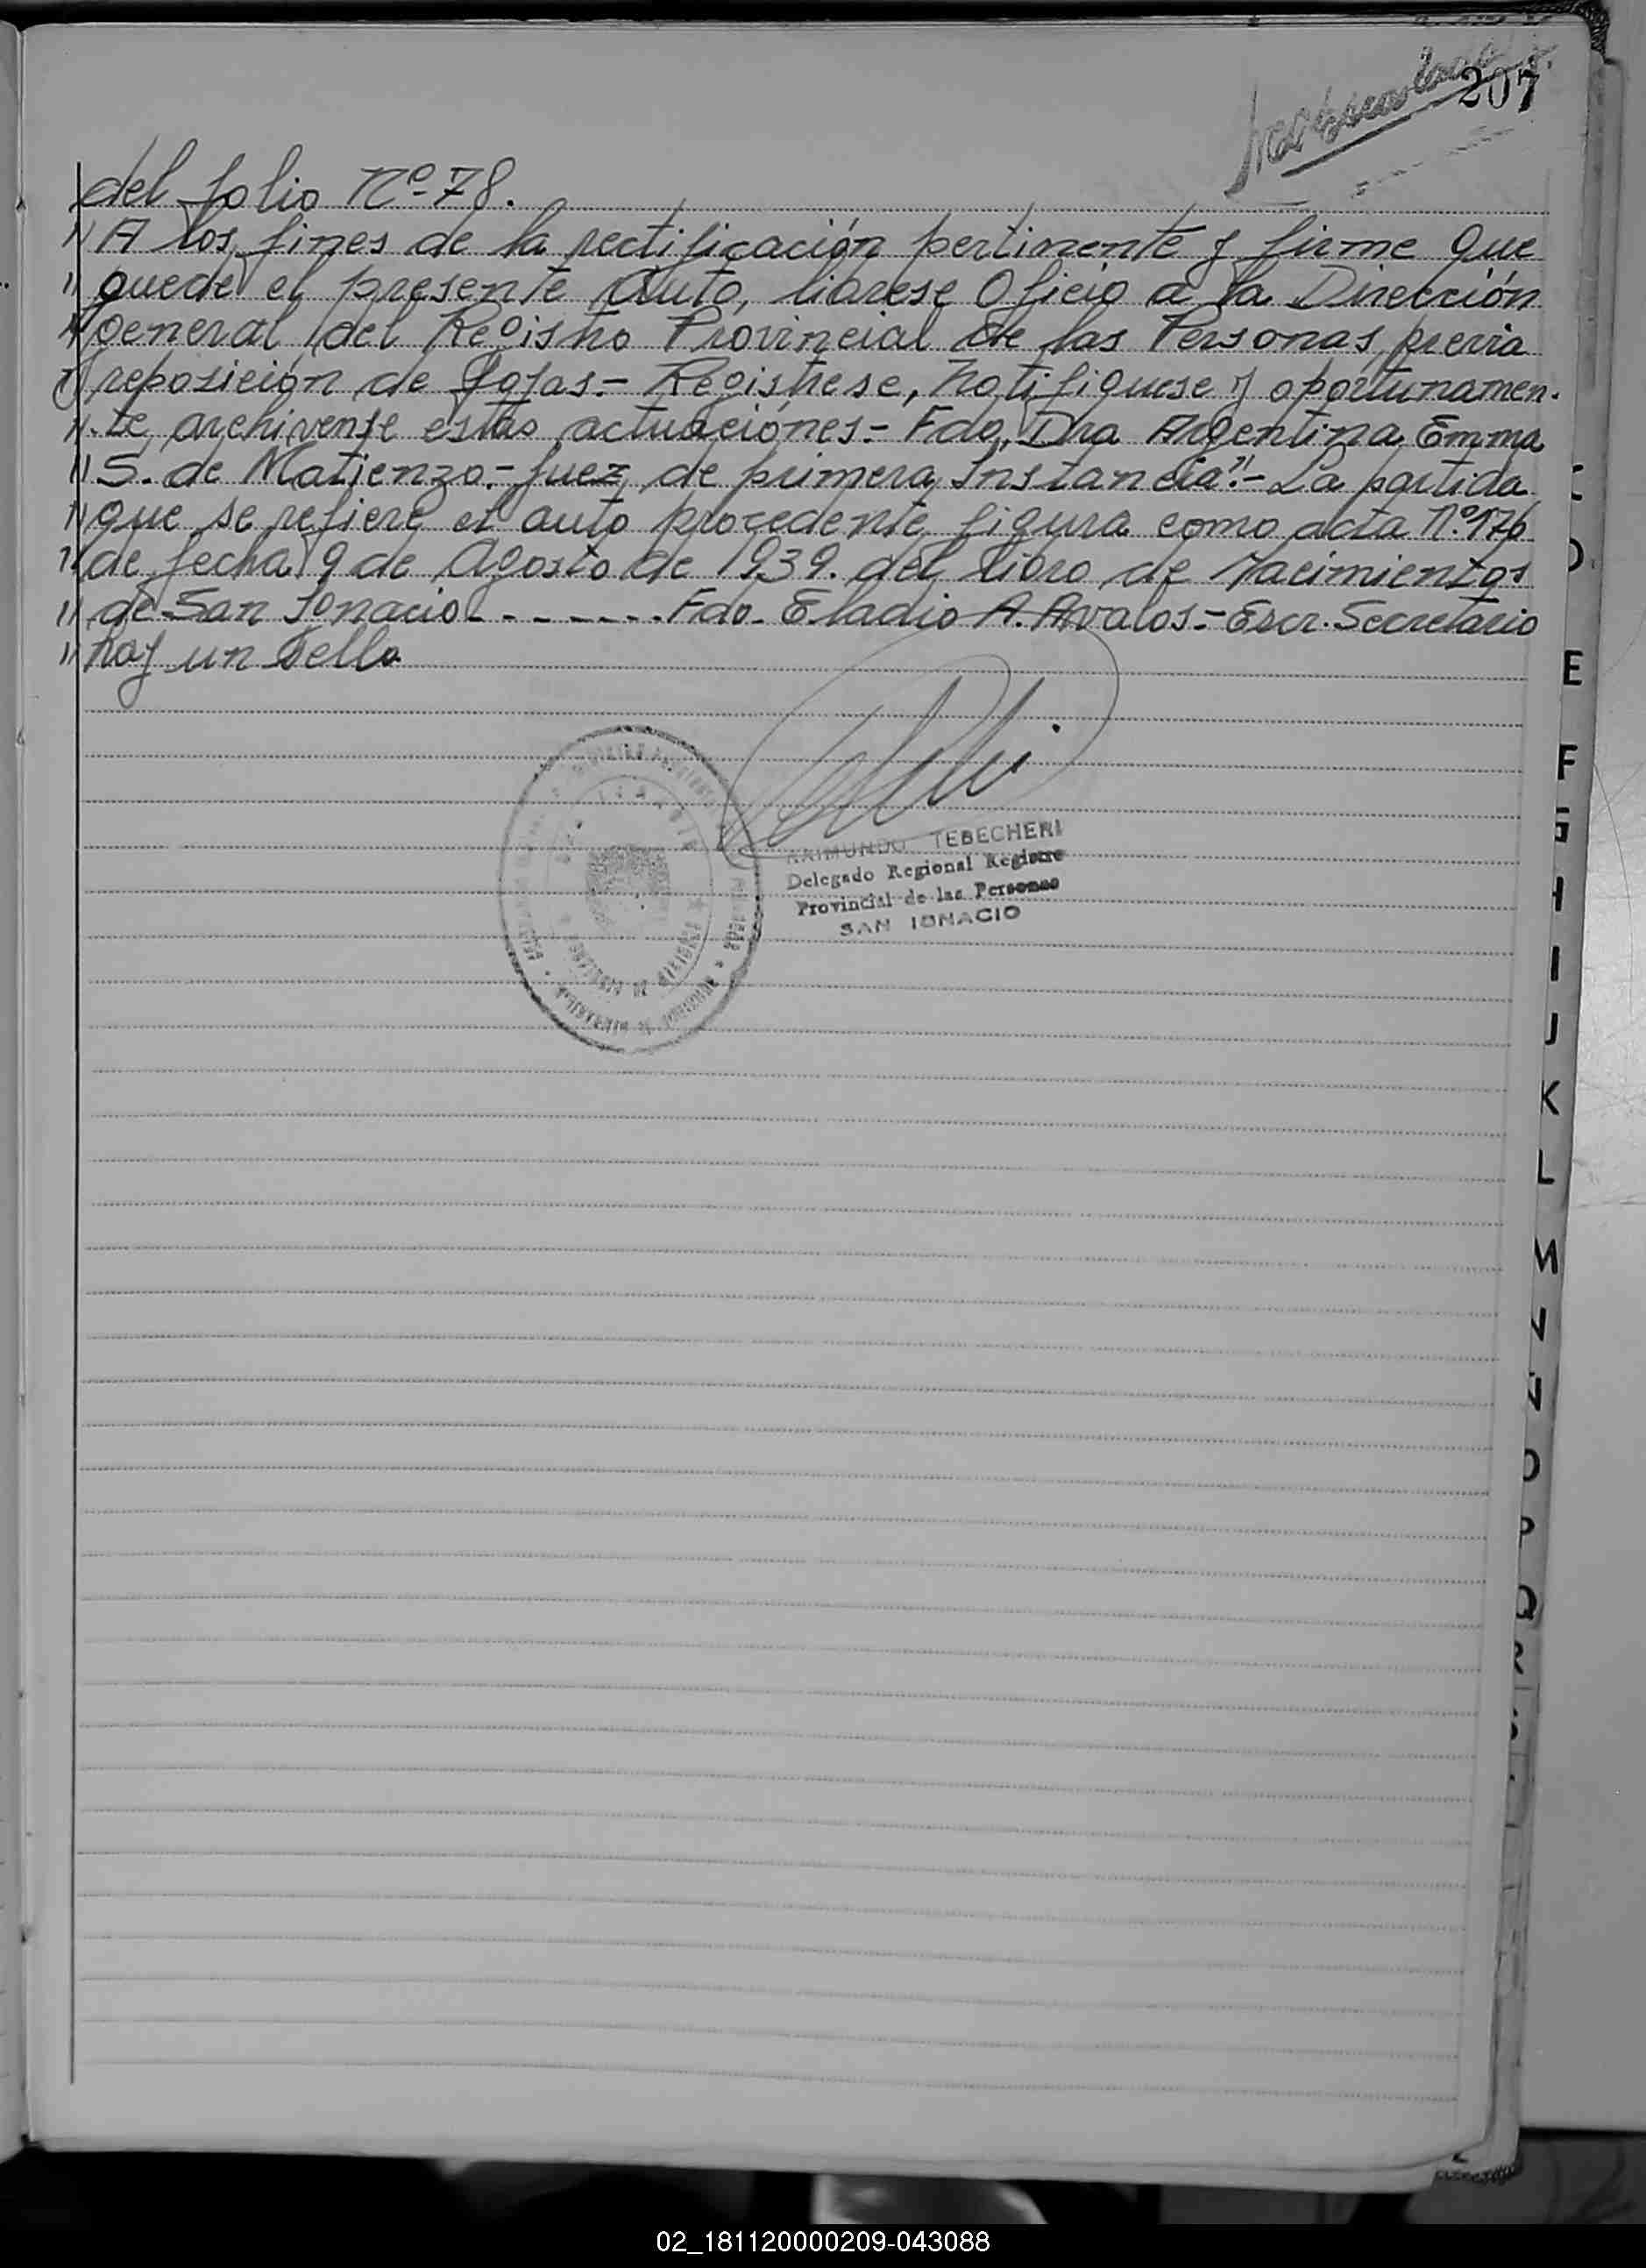 207
del folio Nº-78.
" A los fines de la rectificación pertinente y firme que
" quede el presente Auto, librese Oficio a la Dirección
" general del Registro Provincial de las Personas, previa
reposición de fojas.- Registrese, notifiquese y oportunamen.
".te, archivense estas actuaciónes.- Fdo, Dra Argentina Emma
" S. de Matienzo.- Juez de primera Instancia".- La partida
" que se refiere el auto procedente figura como acta Nº.176
" de fecha 9 de Agosto de 1939. del libro de Nacimientos
" de San Ignacio.-------Fdo. Eladio A. Avalos.- Escr. Secretario
" hay un Sello
RAIMUNDO TEBECHERI
Delegado Regional Registro
Provincial de las Personas
SAN IGNACIO
E
F
G
H
I
J
K
L
M
N
N
O
P
Q
R
S
02_181120000209-043088